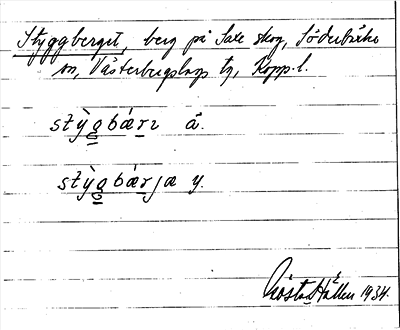 Styggberget, berg på Saxe skog, Söderbärke
sn, Västerbergslags tg, Kopp. l.
stỳgbárɪ ä.
stỳgbárja y.
Gösta Hållen 1934.